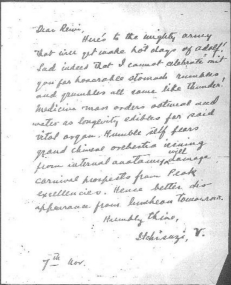 Dear Remi,
Here's to the mighty army
that will get make hot dogs of adolf!
Sad indeed that I cannot celebrate mit
you for honorable stomach rumbles
and grumbles all same like thunder!
Medicine man orders oatmeal and
water as longevity edibles for said
vital organ. Humble self fears
grand Chinese orchestra issuing
from internal anatomy with
carnivel prospects from Peak
excellencies. Hence better
appearance from luncheon tomorrow.
Humbly thine,
V.
7th Nov.